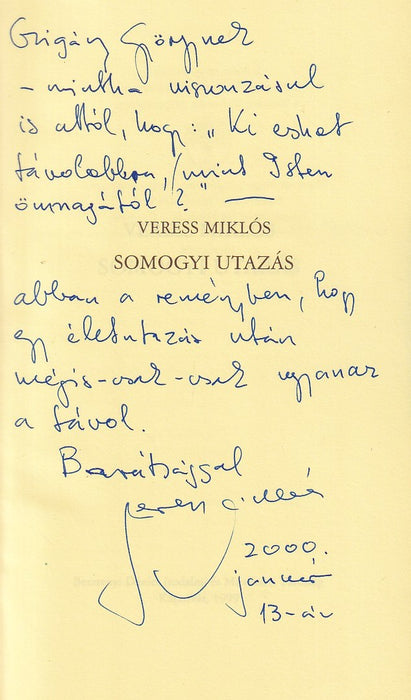 Czigány Györgynek
– mintha viszonzásul
is attól, hogy: „Ki eshet
távolabbra, / mint Isten
önmagától?" —
VERESS MIKLÓS
SOMOGYI UTAZÁS
abban a reményben, hogy
egy életutazás után
mégis-csak-csak ugyanaz
a távol.
Barátsággal
Veress Miklós
2000.
január
13-án